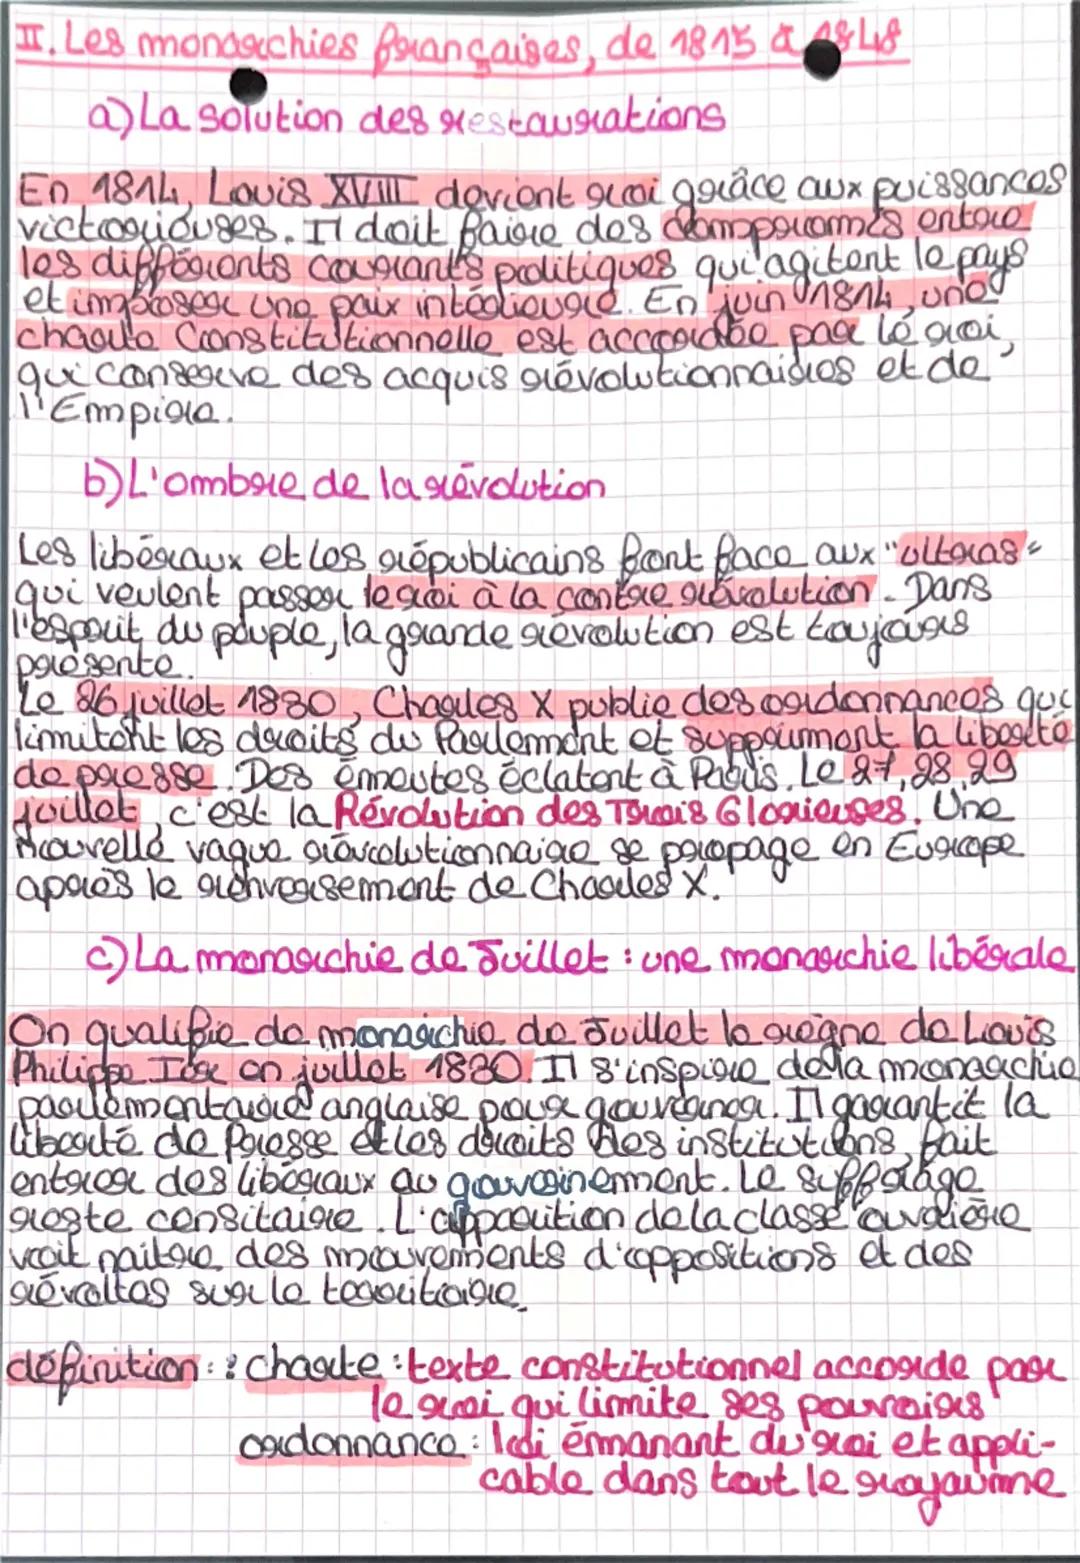 II. Les monarchies françaises, de 1815 à 1848
a) La solution des restaurations
En 1814, Louis XVIII devient roi grâce aux puissances
victorieuses. Il doit faire des compromis entre
les différents courants politiques qui agitent le pays
et imposer une paix intérieure. En juin 1814, une
charte Constitutionnelle est accordée par le roi,
qui conserve des acquis révolutionnaires et de
l'Empire.
b) L'ombre de la révolution
Les libéraux et les républicains font face aux "ultras"
qui veulent passer le roi à la contre révolution. Dans
l'esprit du peuple, la grande révolution est toujours
présente.
Le 26 juillet 1830, Charles X publie des ordonnances qui
limitent les droits du Parlement et suppriment la liberté
de presse. Des émeutes éclatent à Paris. Le 27, 28, 29
juillet, c'est la Révolution des Trois Glorieuses. Une
nouvelle vague révolutionnaire se propage en Europe
après le renversement de Charles X.
c) La monarchie de Juillet : une monarchie libérale
On qualifie de monarchie de Juillet le règne de Louis
Philippe Ier en juillet 1830. Il s'inspire de la monarchie
parlementaire anglaise pour gouverner. Il garantit la
liberté de Presse et les droits des institutions, fait
entrer des libéraux au gouvernement. Le suffrage
reste censitaire. L'apparition de la classe ouvrière
voit naitre des mouvements d'oppositions et des
révoltes sur le territoire.
définition : : charte : texte constitutionnel accorde par
le roi qui limite ses pouvoirs
ordonnance : loi émanant du roi et appli-
cable dans tout le royaume